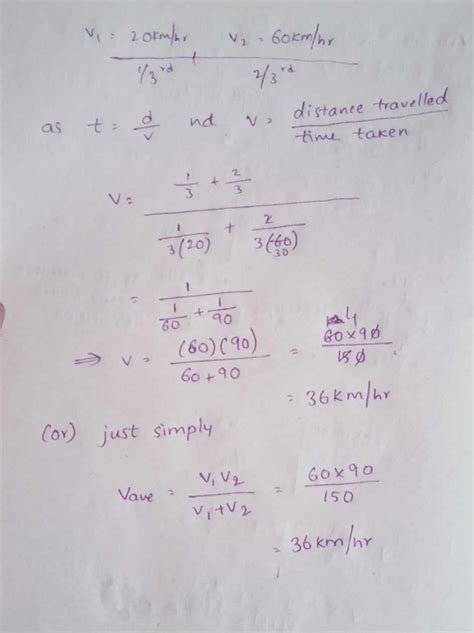 V₁ = 20km/hr V₂ = 60km/hr
1/3 rd 2/3 rd
as t = d/v nd v = distance travelled / time taken
V = (1/3 + 2/3) / (1/3(20) + 2/3(60))
30
= 1 / (1/60 + 1/90)
⇒ V = (60)(90) / 60+90 = 60×90 / 150
4
= 36km/hr
(or) just simply
Vave = V₁V₂ / V₁+V₂ = 60×90 / 150
= 36km/hr